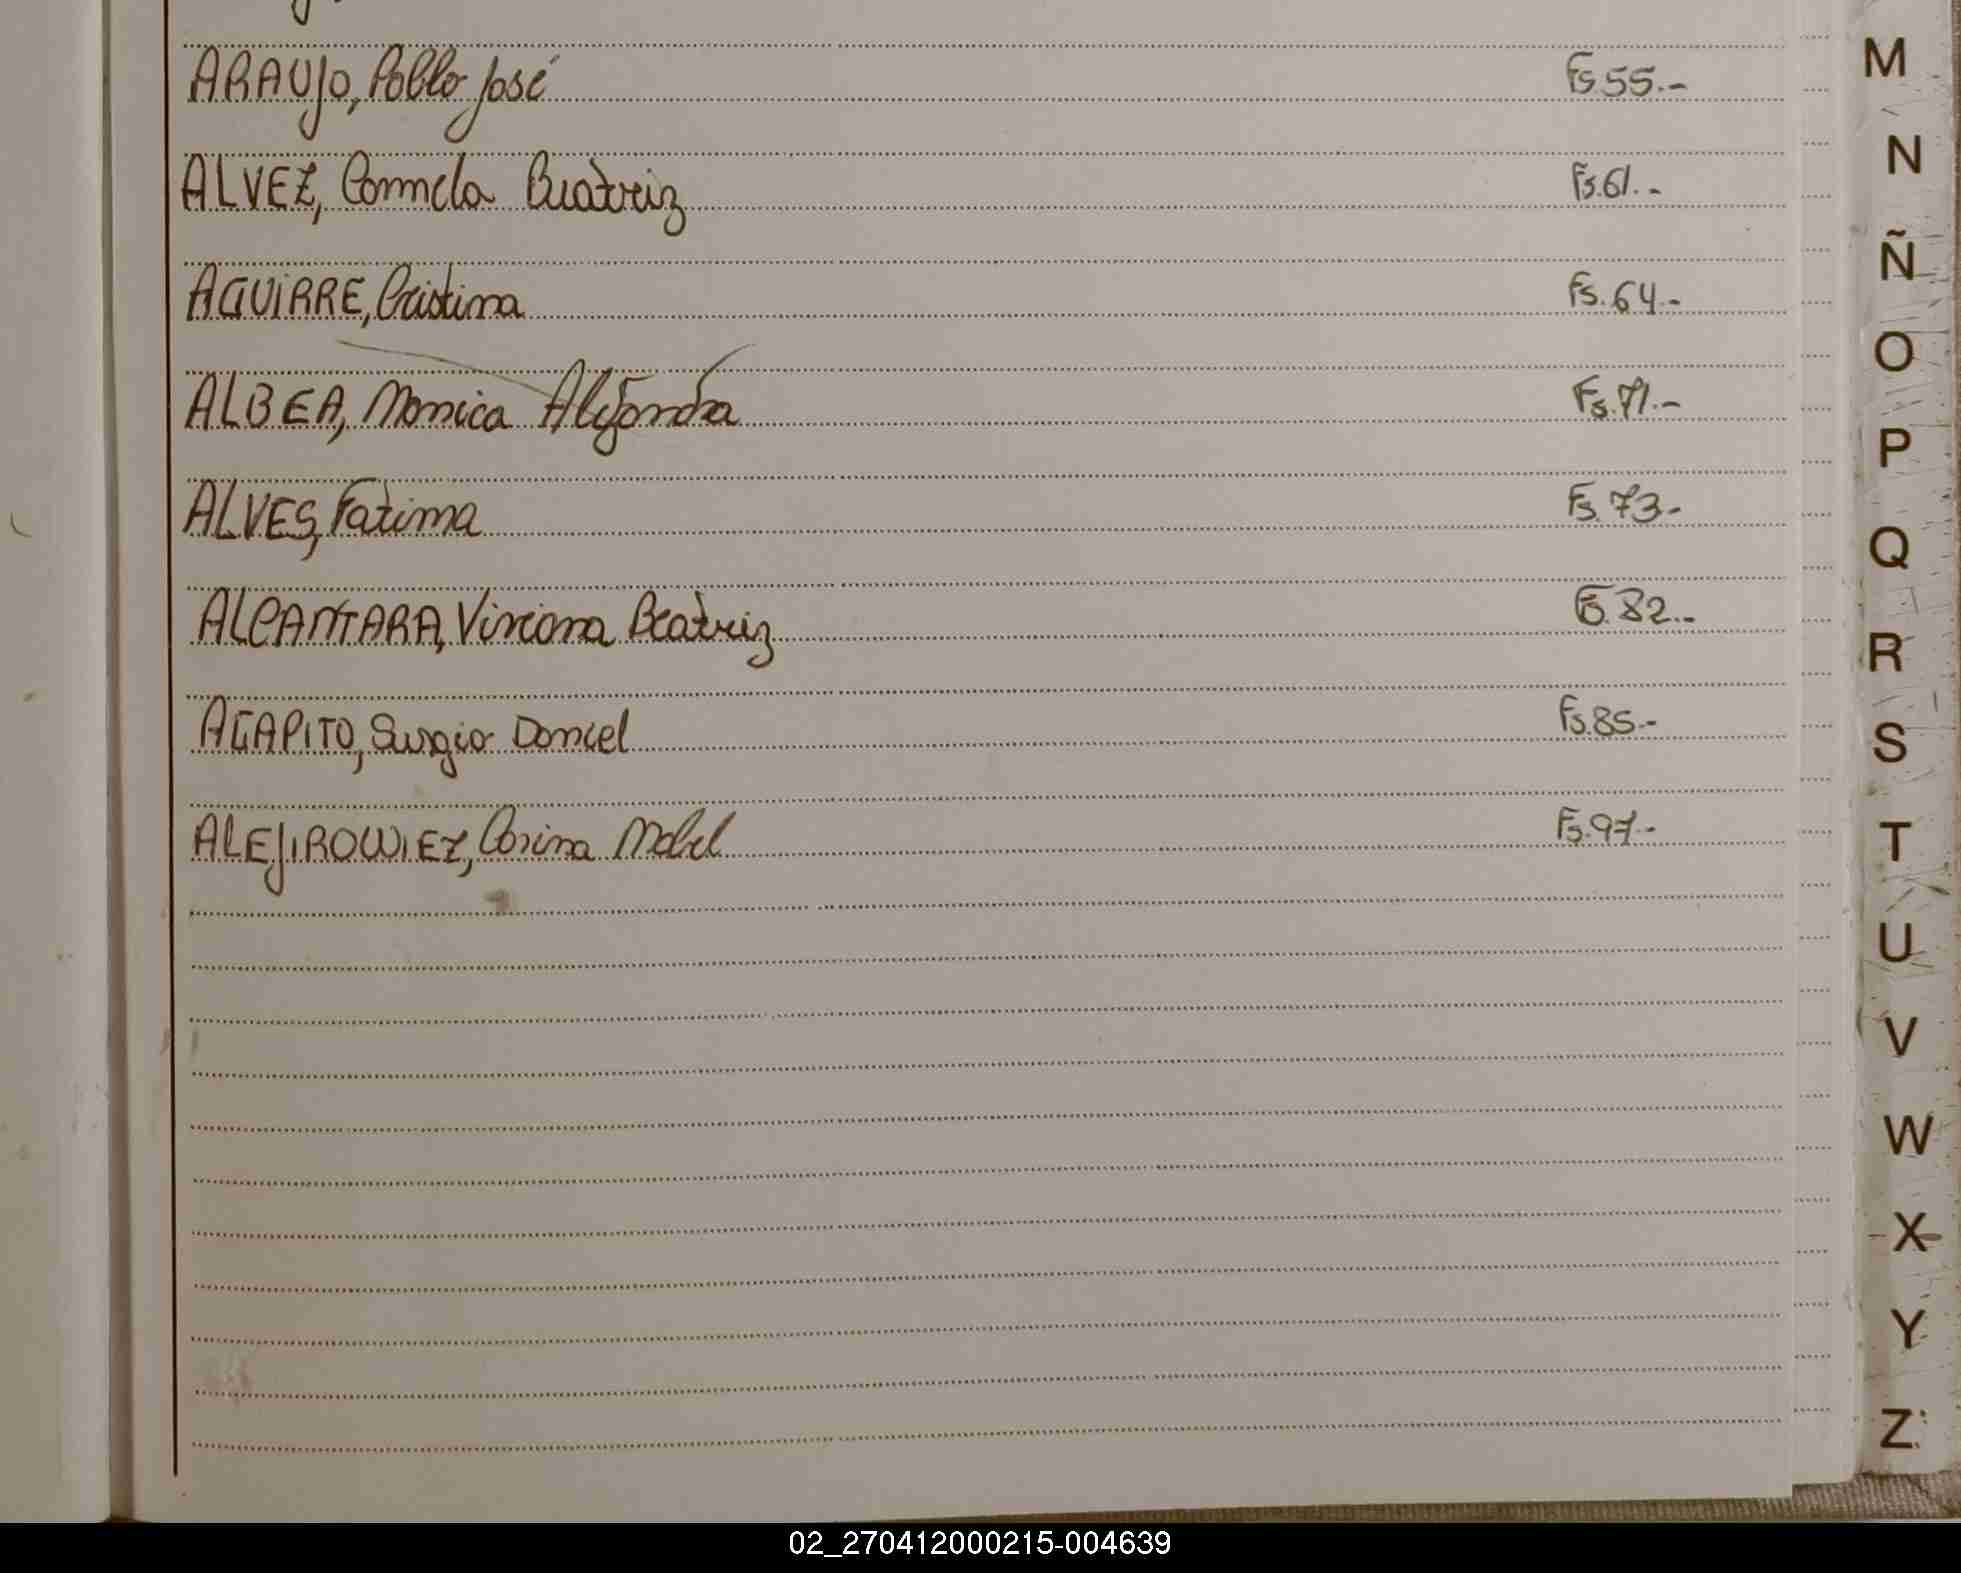 ARAUJO, Pablo José Fs.55.-
ALVEZ, Carmela Beatriz Fs.61.-
AGUIRRE, Cristina Fs.64.-
ALBEA, Monica Alejandra Fs.71.-
ALVES, Fatima Fs.73.-
ALCANTARA, Viviana Beatriz Fs.82.-
AGAPITO, Sergio Daniel Fs.85.-
ALEJIROWIEZ, Corina Mabel Fs.97.-
M
N
Ñ
O
P
Q
R
S
T
U
V
W
X
Y
Z
02_270412000215-004639